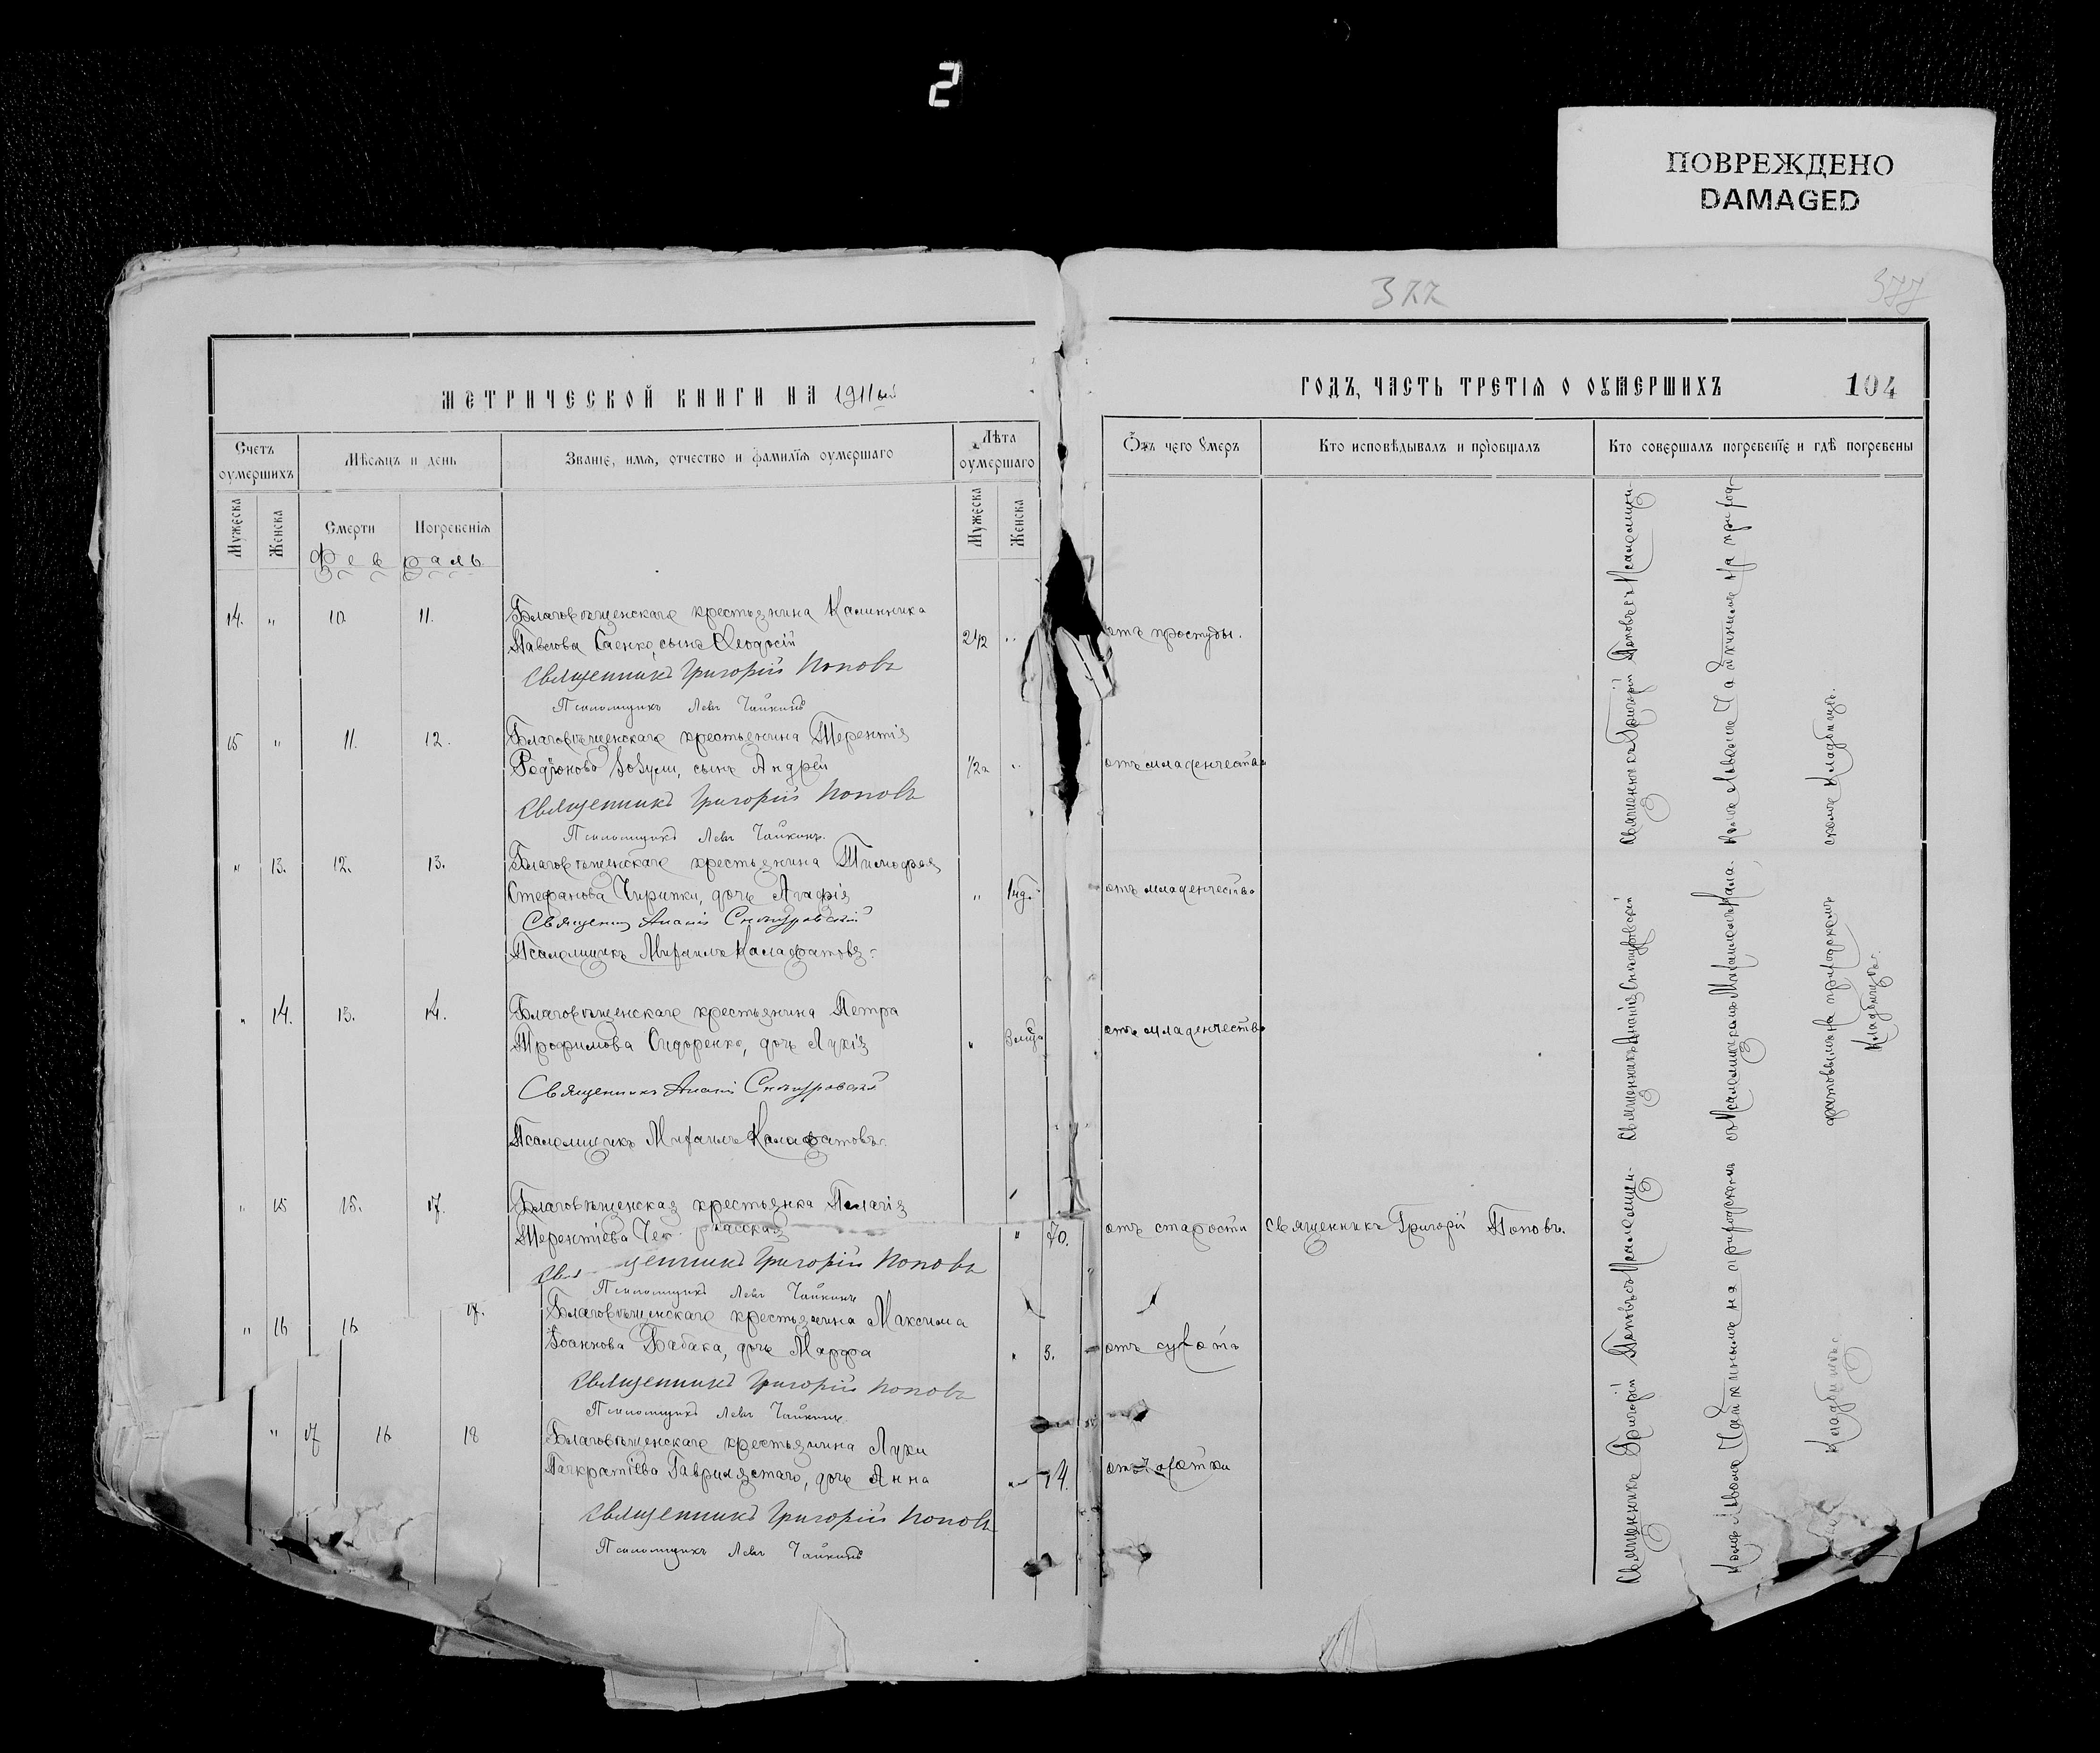 2
ПОВРЕЖДЕНО
DAMAGED
377
377
МЕТРИЧЕСКОЙ КНИГИ НА 1911ый
ГОДЪ, ЧАСТЬ ТРЕТІЯ О ОУМЕРШИХЪ
104
Счетъ оумершихъ
Мѣсяцъ и день
Званіе, имя, отчество и фамилія оумершаго
Лѣта оумершаго
Отъ чего умеръ
Кто исповѣдывалъ и пріобщалъ
Кто совершалъ погребеніе и гдѣ погребены
Мужеска
Женска
Смерти
Погребенія
Мужеска
Женска
Февраль
14. " 10 11. Благовѣщенскаго крестьянина Калинника
Павлова Саенко, сынъ Феодосій 2 1/2 " отъ простуды.
Священникъ Григорій Поповъ
Псаломщикъ Левъ Чайкинъ
15 " 11. 12. Благовѣщенскаго крестьянина Терентія
Родіонова сынъ Андрей 1/2 " отъ младенчества
Священникъ Григорій Поповъ
Псаломщикъ Левъ Чайкинъ.
" 13. 12. 13. Благовѣщенскаго крестьянина Тимофея
Стефанова Чирипки, дочь Агафія " отъ младенчества
Священникъ Ананій
Псаломщикъ Михаилъ Калафатовъ.
" 14. 13. 14. Благовѣщенскаго крестьянина Петра
Трофимова Сидоренко, дочь Лукія " отъ младенчества
Священникъ Ананій
Псаломщикъ Михаилъ Калафатовъ.
" 15 15. 17. Благовѣщенская крестьянка Пелагія
Терентіева " 70. отъ старости Священникъ Григорій Поповъ.
Священникъ Григорій Поповъ
Псаломщикъ Левъ Чайкинъ
" 16 16 17. Благовѣщенскаго крестьянина Максима
Іоаннова Бабака, дочь Марфа " 3. отъ
Священникъ Григорій Поповъ
Псаломщикъ Левъ Чайкинъ.
" 17 16 18 Благовѣщенскаго крестьянина Луки
Панкратіева дочь Анна " отъ
Священникъ Григорій Поповъ
Псаломщикъ Левъ Чайкинъ
Священникъ Григорій Поповъ съ Псаломщи-
комъ Львомъ Чайкинымъ на приход-
скомъ кладбищѣ.
Священникъ Ананій
съ Псаломщикомъ Михаиломъ Кала-
фатовымъ на приходскомъ
кладбищѣ.
Священникъ Григорій Поповъ съ Псаломщи-
комъ Львомъ Чайкинымъ на приходскомъ
кладбищѣ.